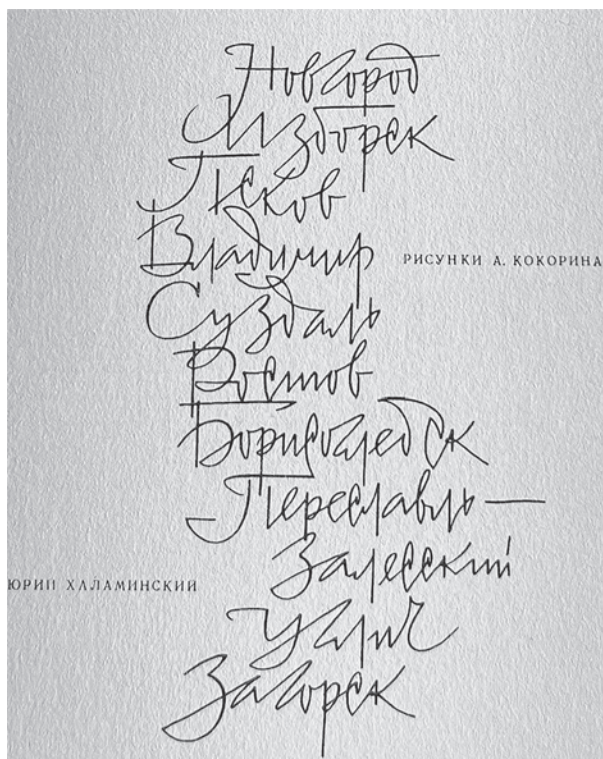 Новгород
Изборск
Псков
Владимир
РИСУНКИ А. КОКОРИНА
Суздаль
Ростов
Борисоглебск
Переславль—
Залесский
ЮРИЙ ХАЛАМИНСКИЙ
Углич
Загорск